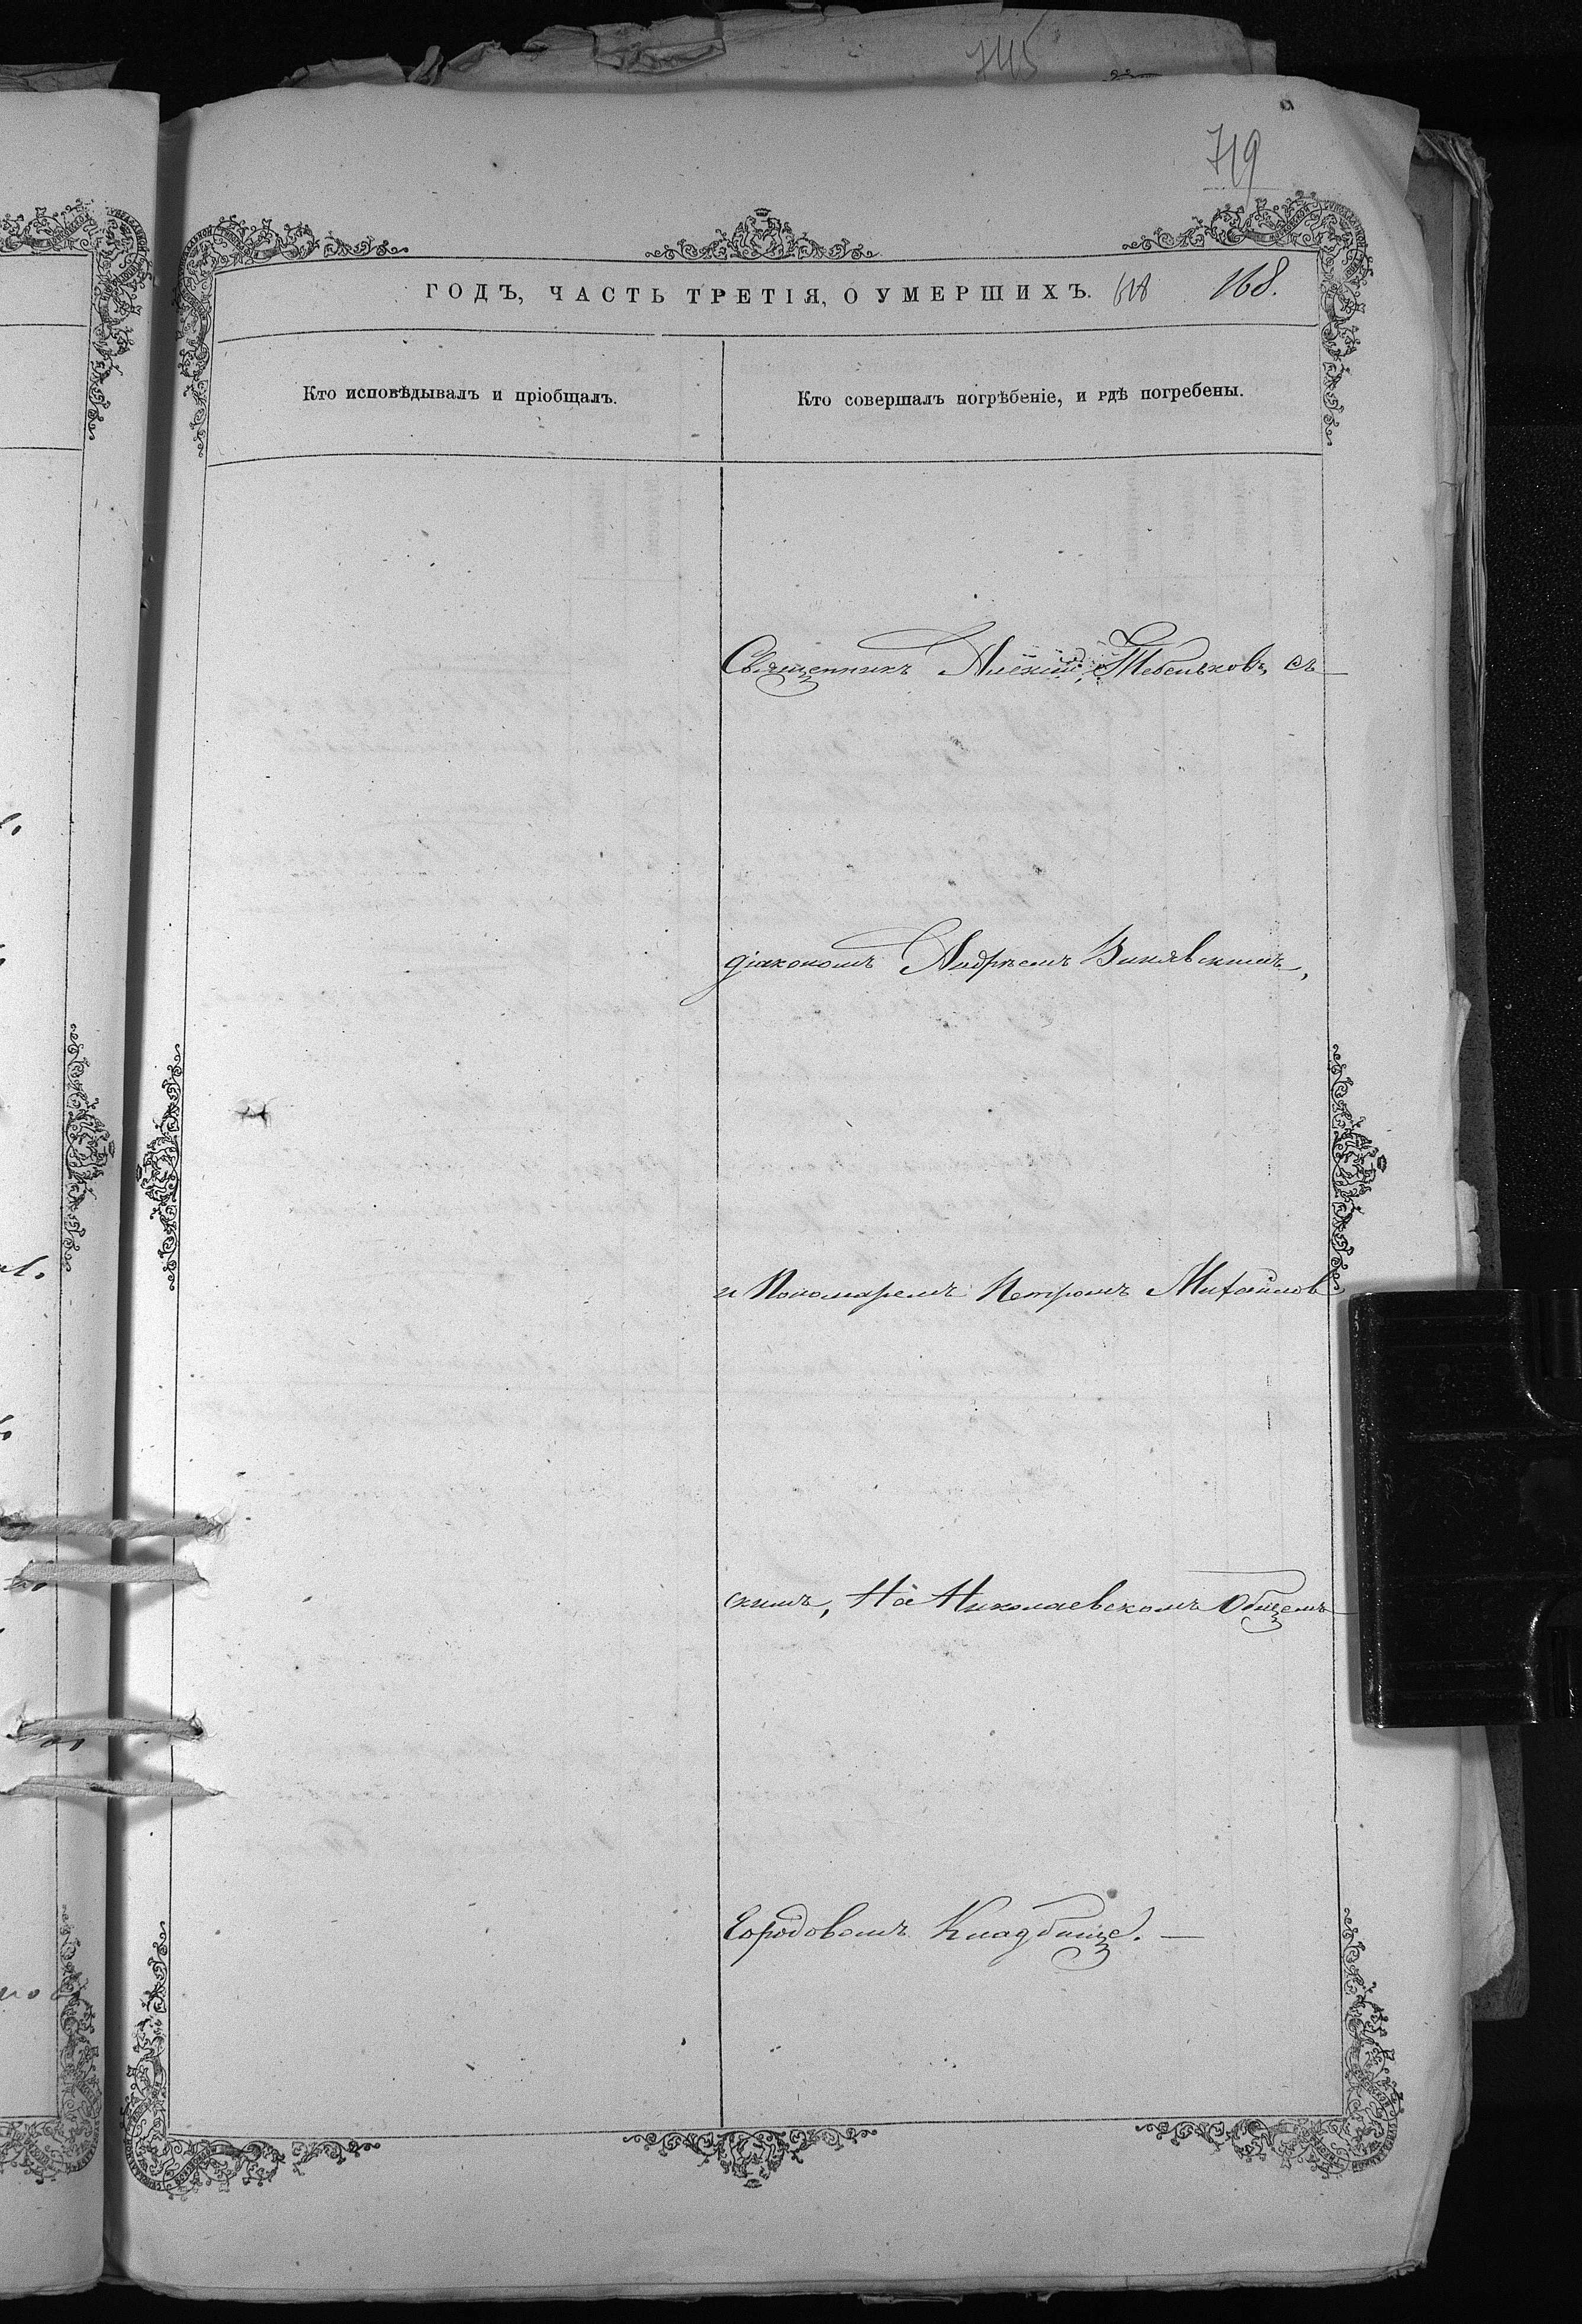 745
719
ГОДЪ, ЧАСТЬ ТРЕТІЯ, О УМЕРШИХЪ. 618 168.
Кто исповѣдывалъ и пріобщалъ.
Кто совершалъ погрѣбеніе, и гдѣ погребены.
Священникъ Алексій Тебеньковъ, съ
діакономъ Андреемъ Винявскимъ,
и Пономаремъ Петромъ Михайлов
скимъ, На Николаевскомъ Общемъ
Городовомъ Кладбище. —